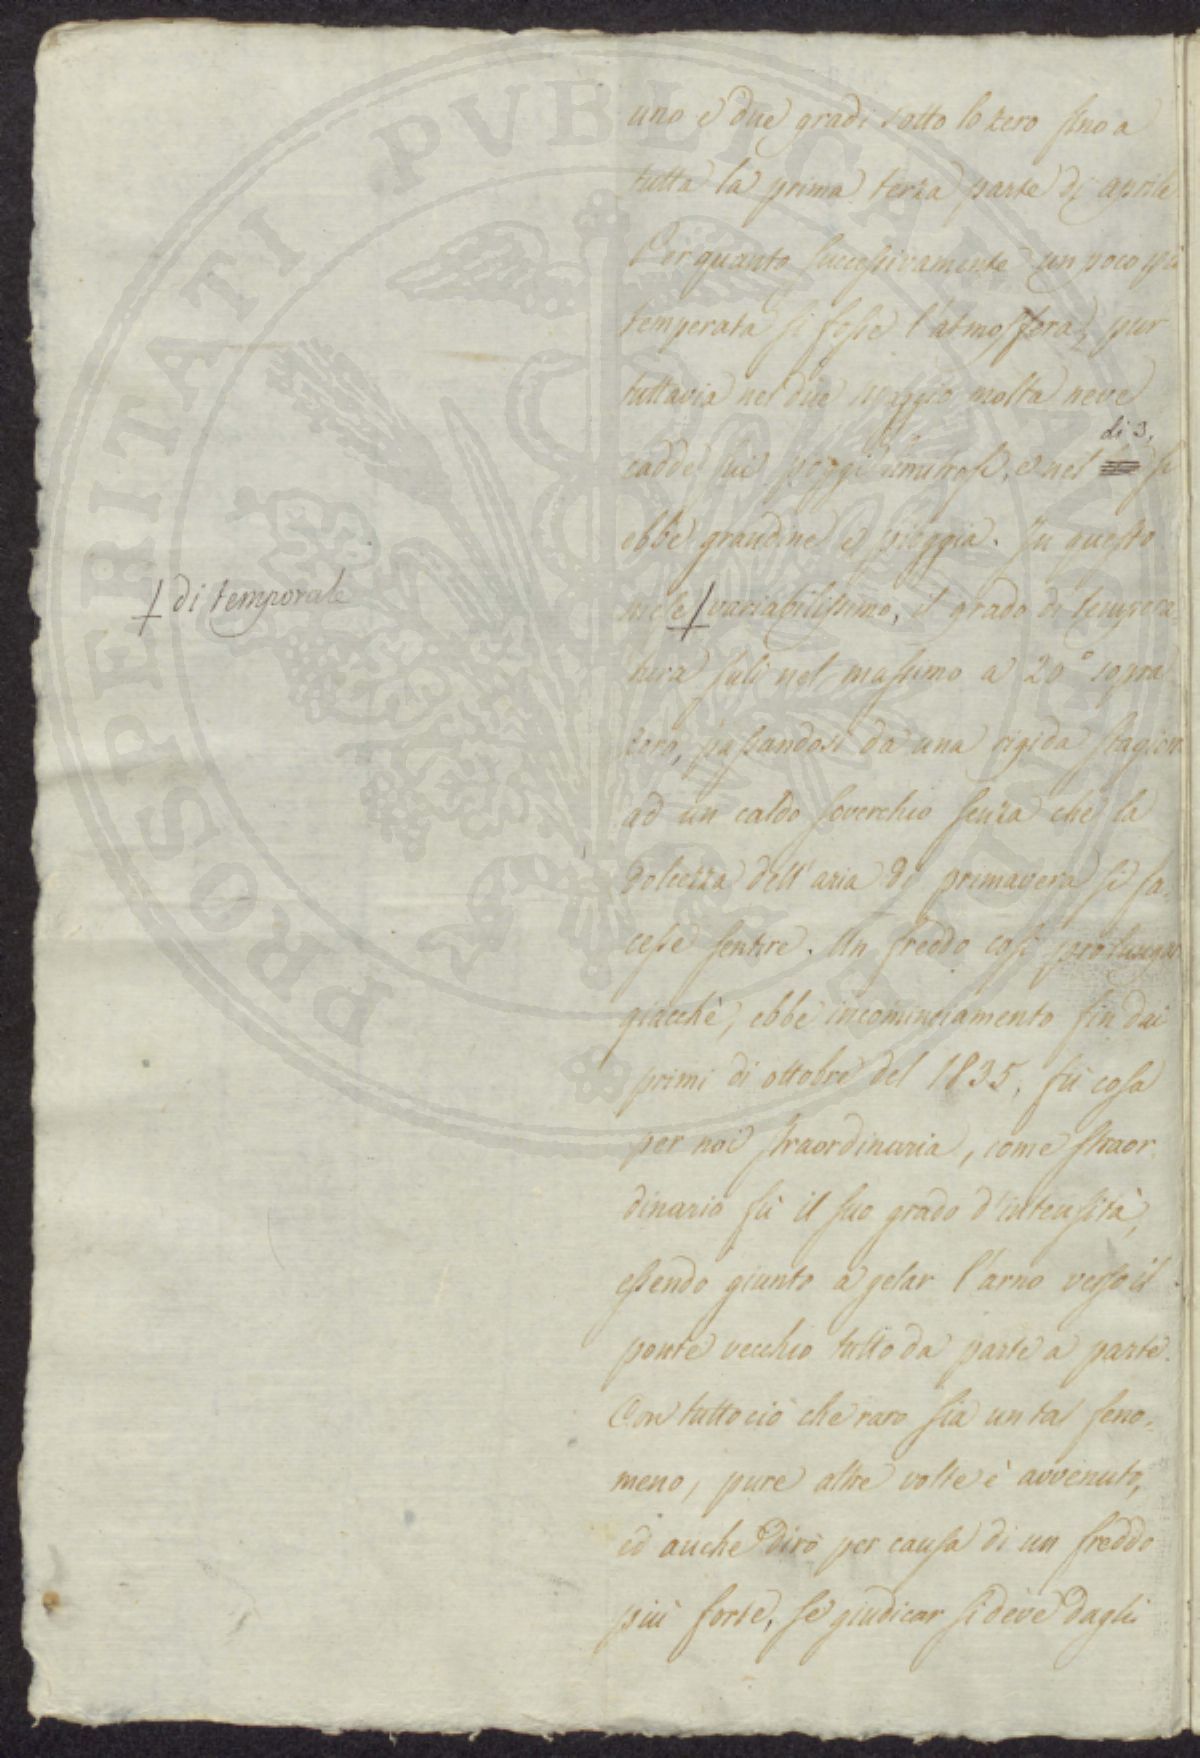 uno e due gradi sotto lo zero fino a
tutta la prima terza parte di aprile
Per quanto successivamente un poco più
temperata si fosse l'atmosfera, pur
tuttavia nel due Maggio molta neve
di 3,
cadde sui poggi limitrofi, e nel si
ebbe grandine e pioggia. In questo
† di temporale
mese † variabilissimo, il grado di tempera-
tura salì nel massimo a 20° sopra
zero, passandosi da una rigida stagion
ad un caldo soverchio senza che la
dolcezza dell'aria di primavera si fa-
cesse sentire. Un freddo così
giacchè, ebbe incominciamento fin dai
primi di ottobre del 1835, fù cosa
per noi straordinaria, come straor
dinario fù il suo grado d'intensità,
essendo giunto a gelar l'arno verso il
ponte vecchio tutto da parte a parte.
Con tuttociò che raro sia un tal feno-
meno, pure altre volte è avvenuto,
ed anche dirò per causa di un freddo
più forte, se giudicar si deve dagli
PROSPERITATI PUBLICAE AUGENDAE